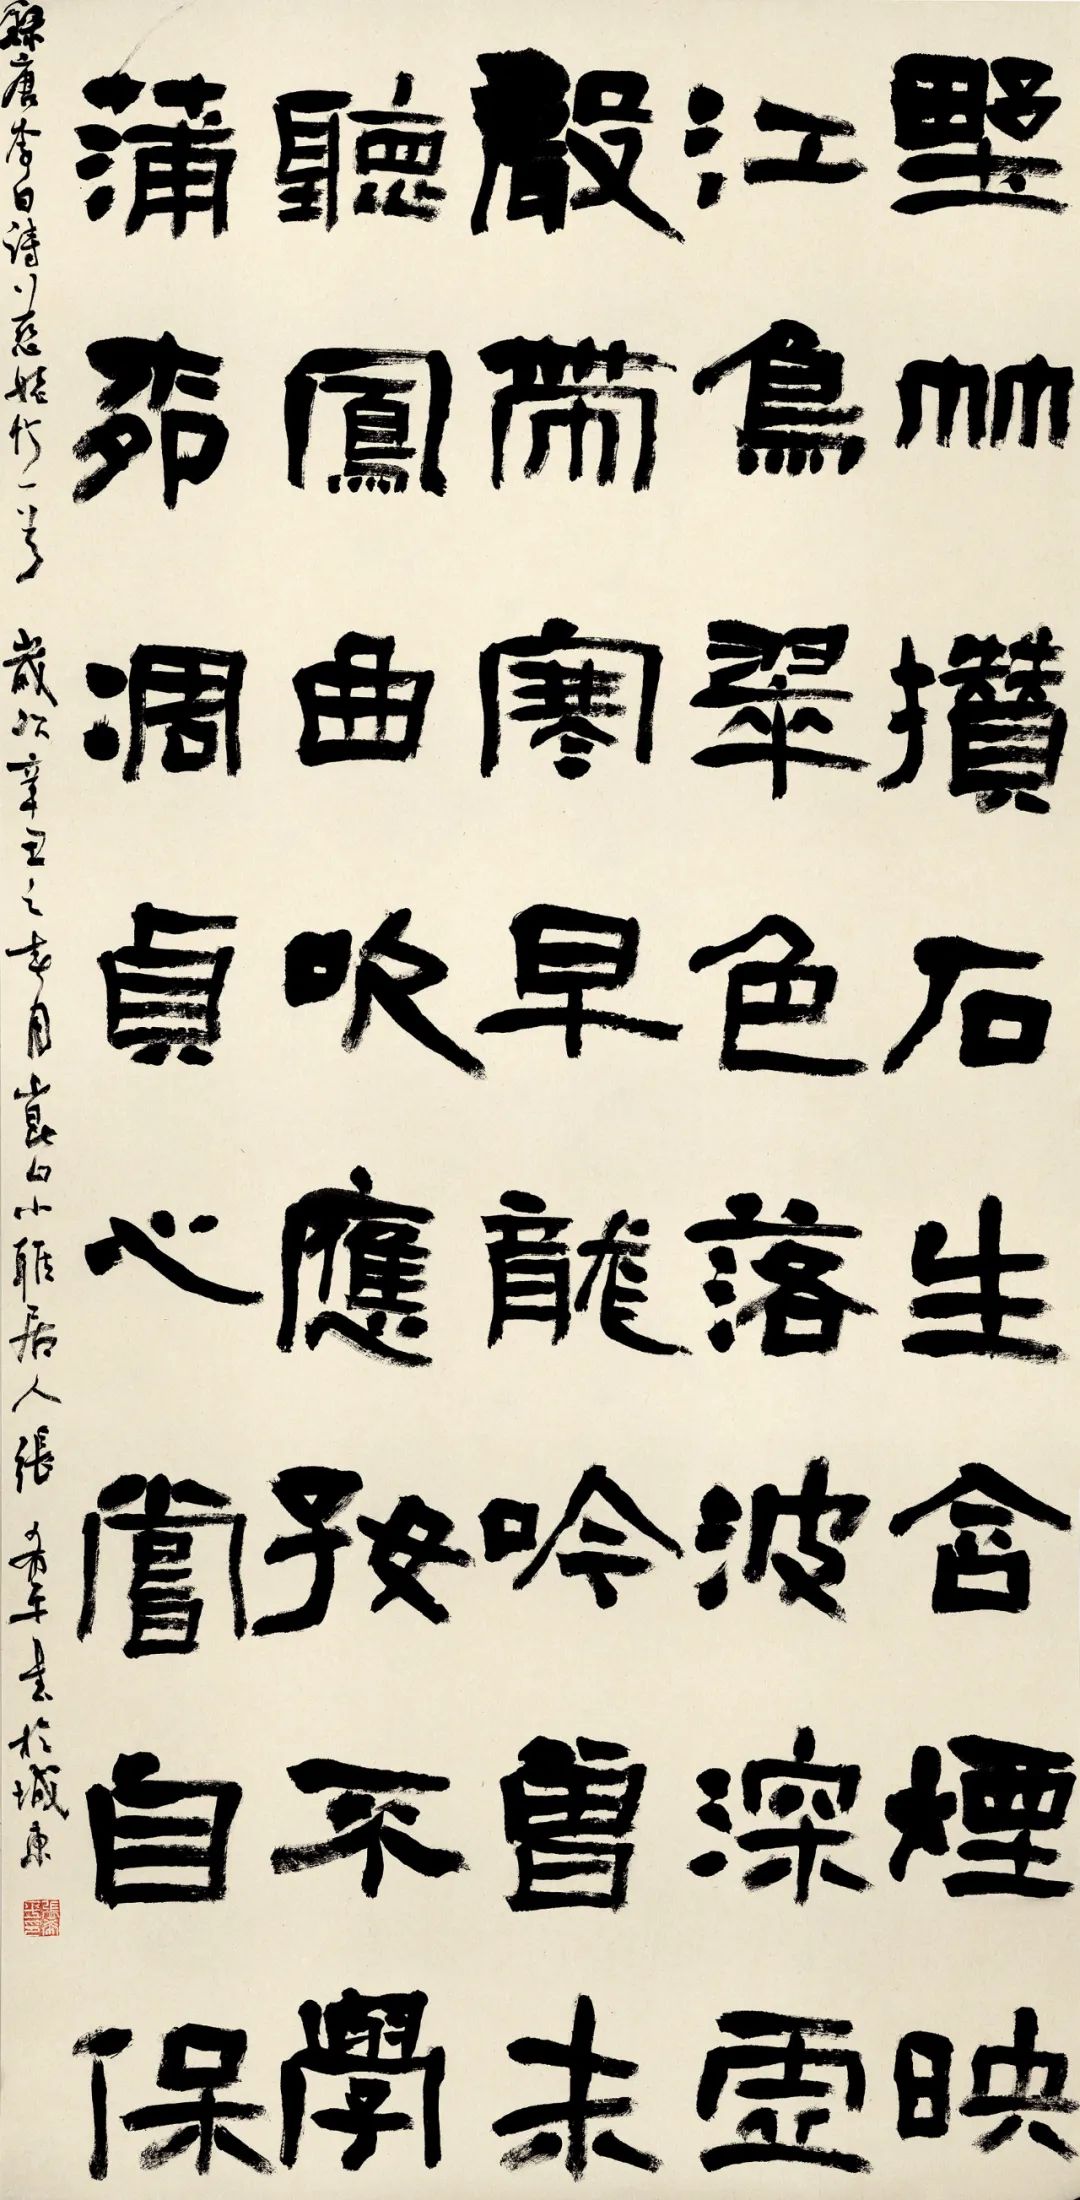 野竹攢石生含煙映
江島翠色落波深虛
聲帶寒早龍吟曾未
聽鳳曲吹應好不學
蒲柳凋貞心嘗自保
錄唐李白詩慈姥竹一首 歲次辛丑之春月 小 居人張希平書於城東